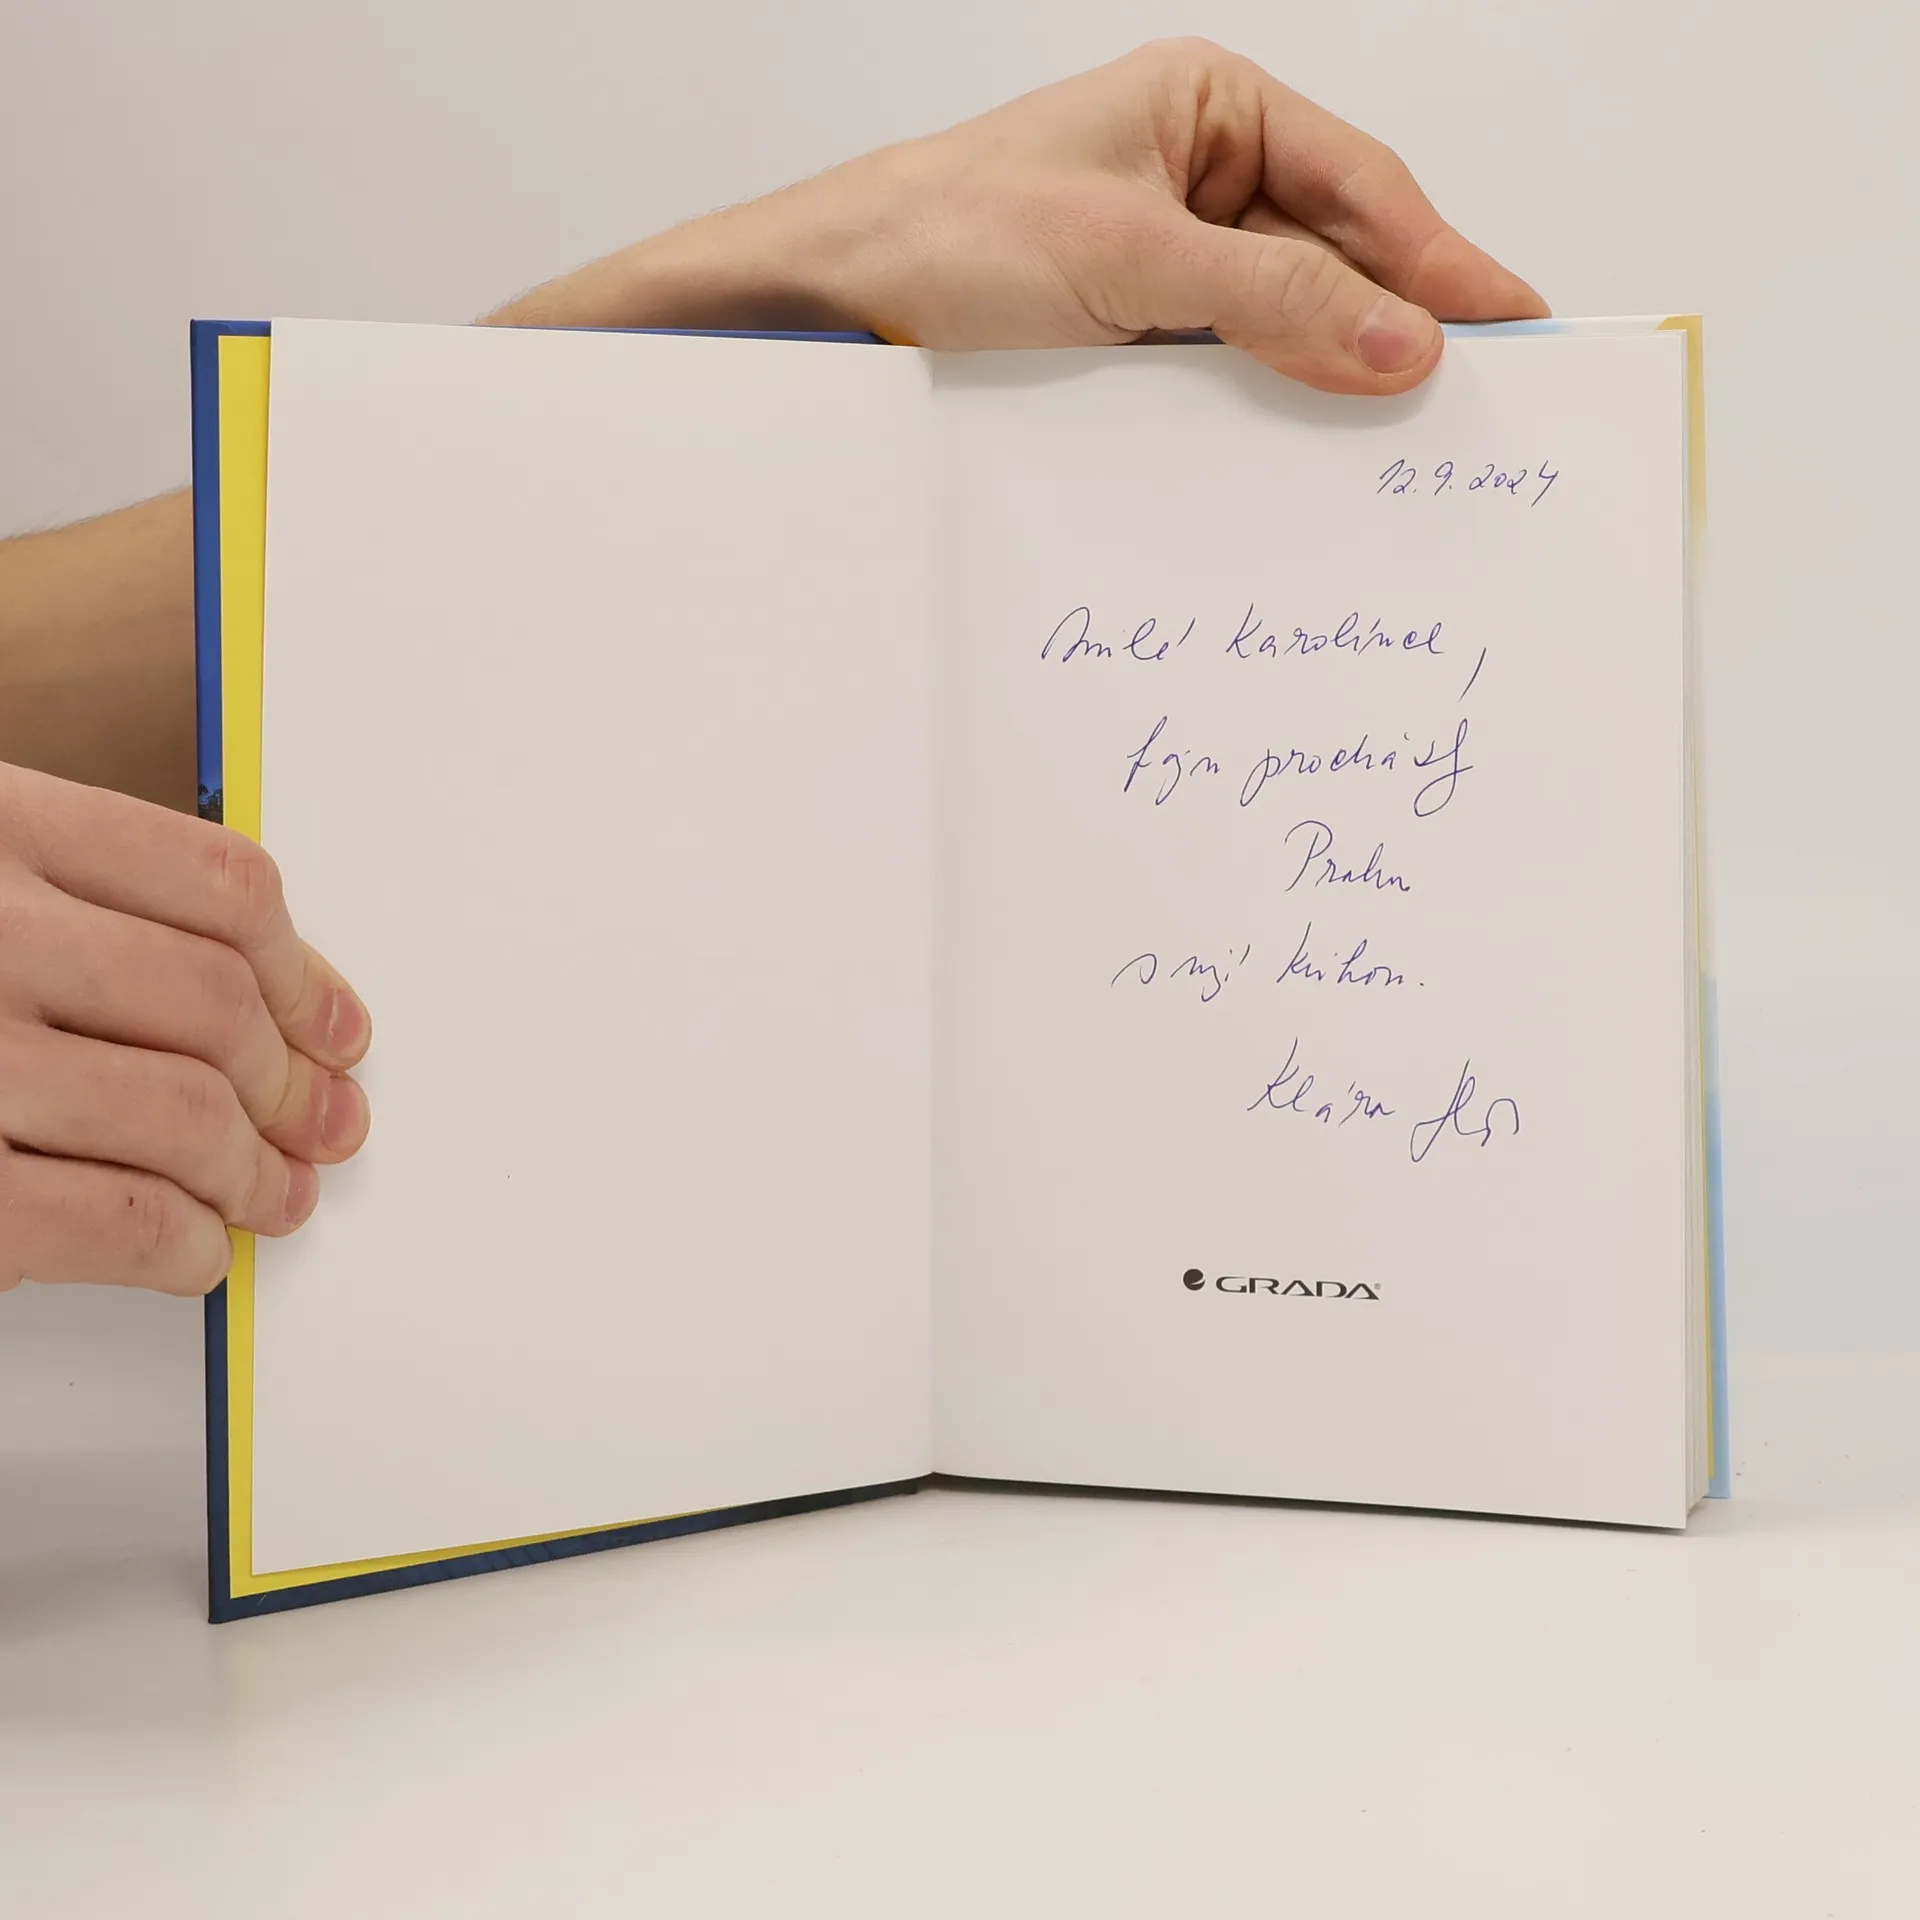 12. 9. 2024
Milé Karolínce,
fajn procházky
Prahou
s mojí knihou.
Klára
GRADA®